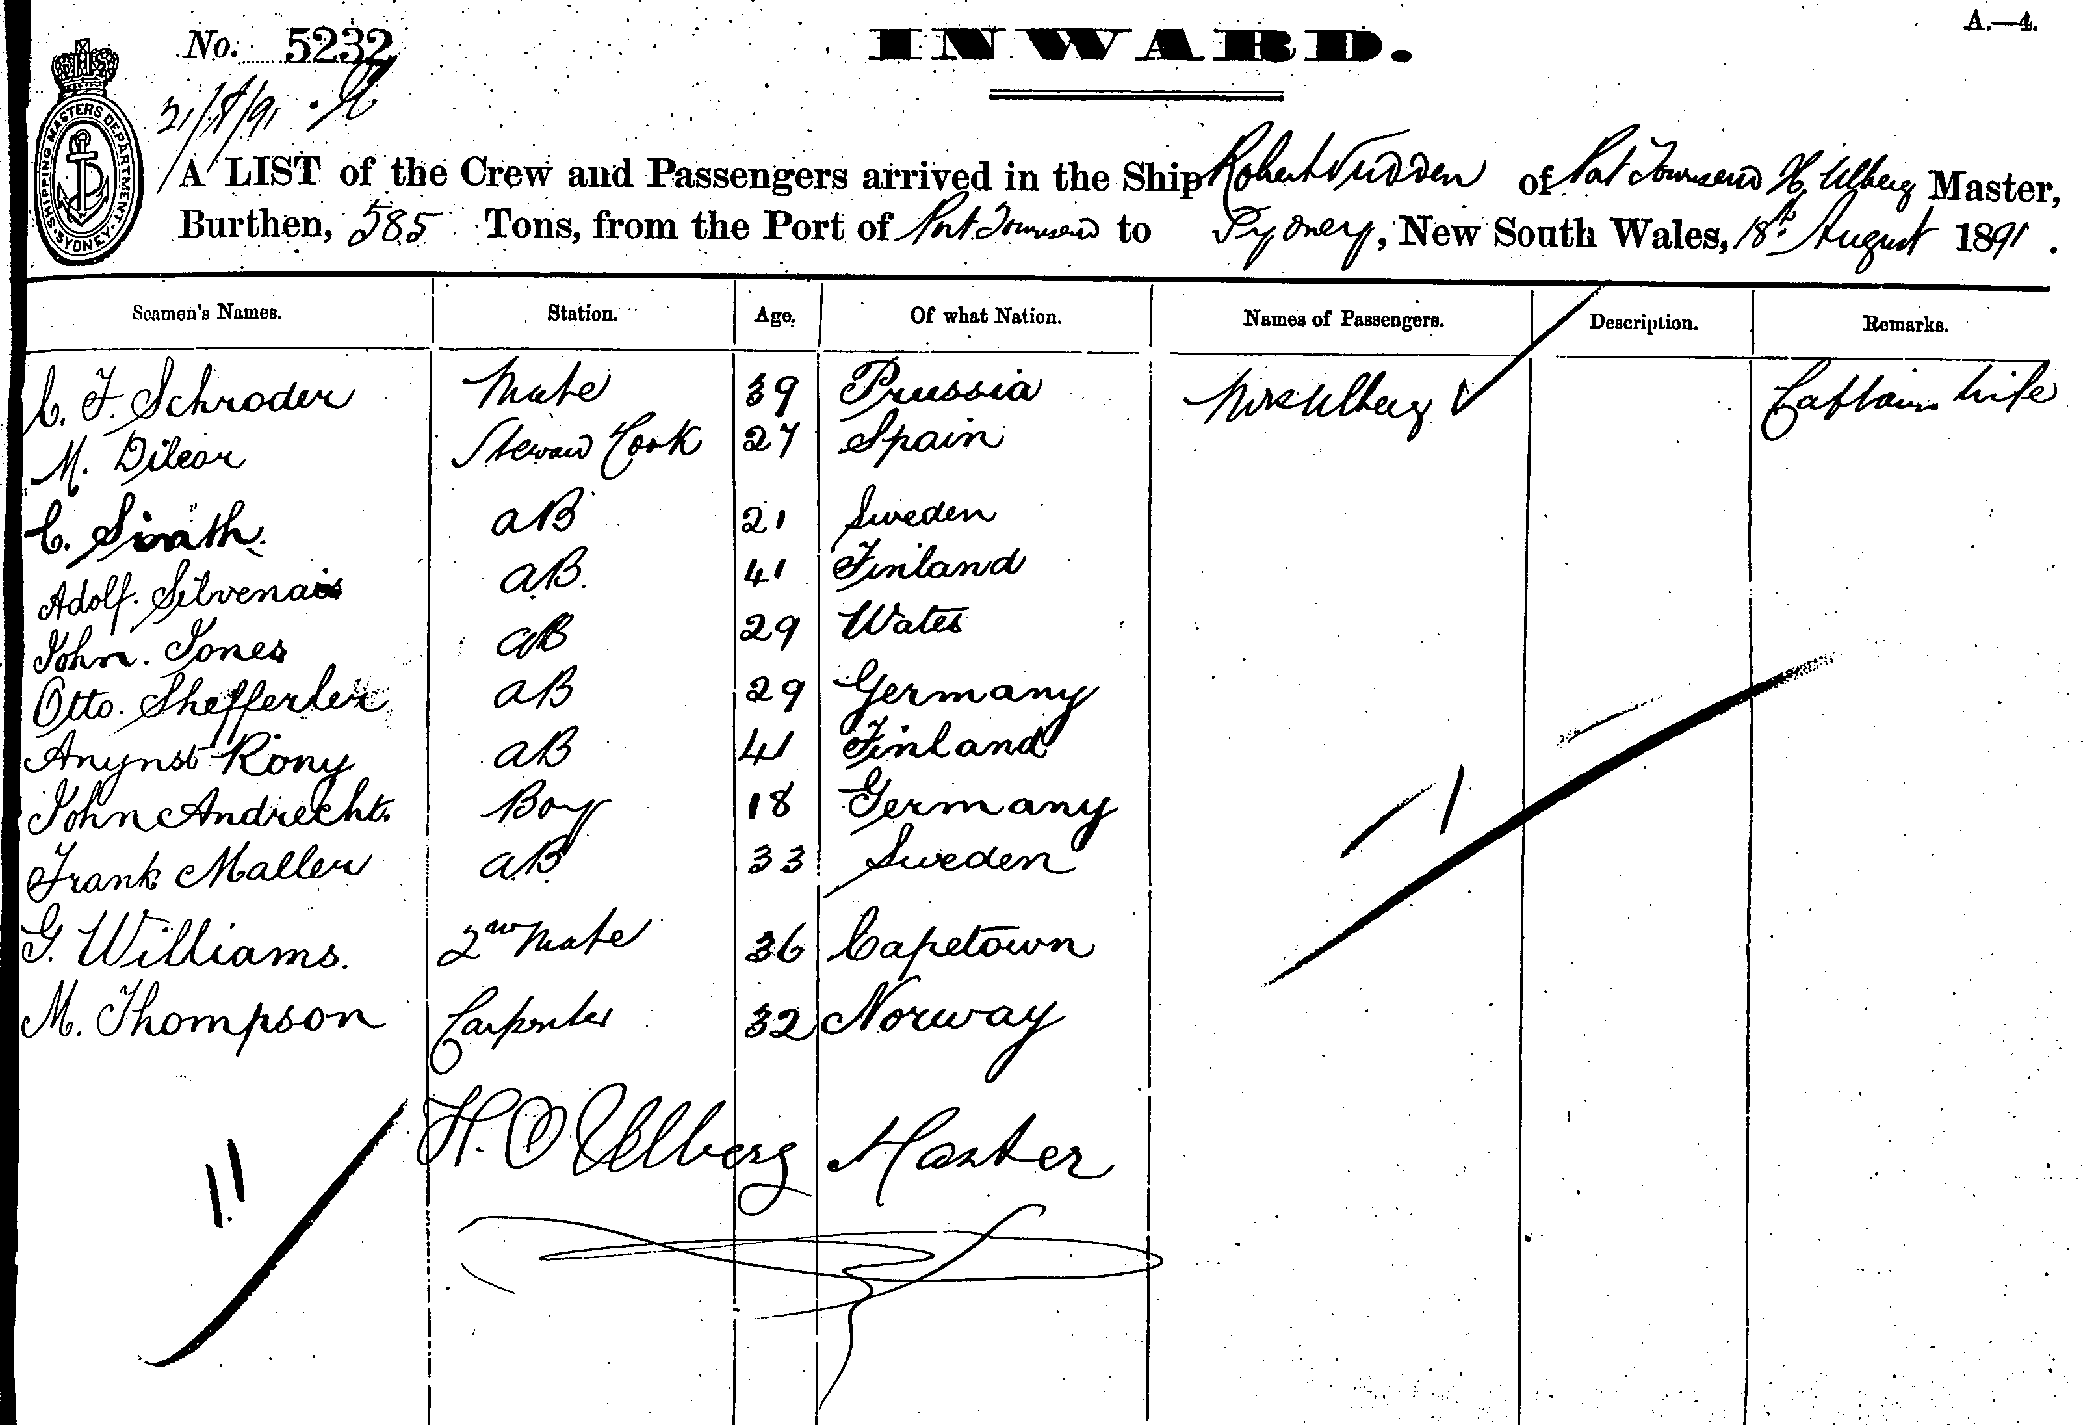 No. 5232
INWARD.
A.—4.
21/8/91
SHIPPING MASTERS DEPARTMENT SYDNEY
A LIST of the Crew and Passengers arrived in the Ship Robert Sudden of Port Townsend H Ulberg Master,
Burthen, 585 Tons, from the Port of Port Townsend to Sydney, New South Wales, 18th August 1891.
Seamen's Names. Station. Age. Of what Nation. Names of Passengers. Description. Remarks.
C. F. Schroder Mate 39 Prussia Mrs Ulberg Captains Wife
M. Dilcar Steward Cook 27 Spain
C. Smith. aB 21 Sweden
Adolf. aB. 41 Finland
John. Jones aB 29 Wales
Otto. aB 29 Germany
aB 41 Finland
John Andrecht. Boy 18 Germany
Frank Maller aB 33 Sweden
G. Williams. 2nd Mate 36 Capetown
M. Thompson Carpenter 32 Norway
H. O Ulberg Master
11
1